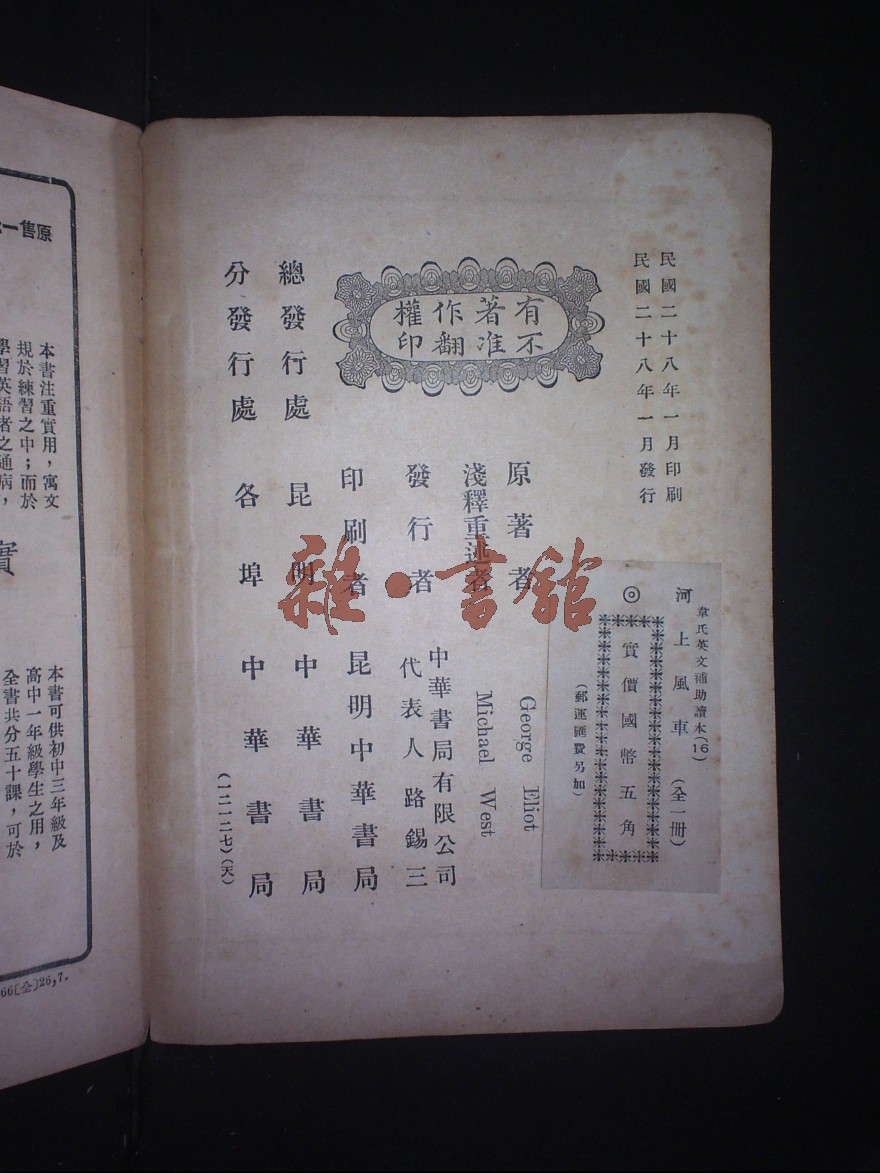 民國二十八年一月印刷
民國二十八年一月發行
韋氏英文補助讀本(16)
河上風車（全一冊）
◎實價國幣五角
（郵運匯費另加）
有著作權
不准翻印
原著者 George Eliot
淺釋重述者 Michael West
發行者 中華書局有限公司
代表人路錫三
印刷者 昆明中華書局
總發行處 昆明 中華書局
分發行處 各埠 中華書局
（一二一二七）（天）
雜·書館
原售一
本書注重實用，寓文
規於練習之中；而於
學習英語者之通病，
實
本書可供初中三年級及
高中一年級學生之用，
全書共分五十課，可於
66〔全〕26,7.